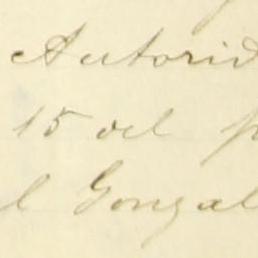 Autorid
15 del p
l Gonzal